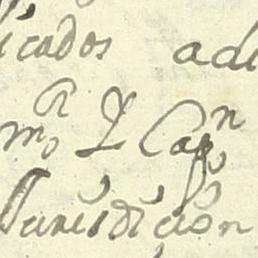 icados adi
mo R Y Capn
Jurisdicion